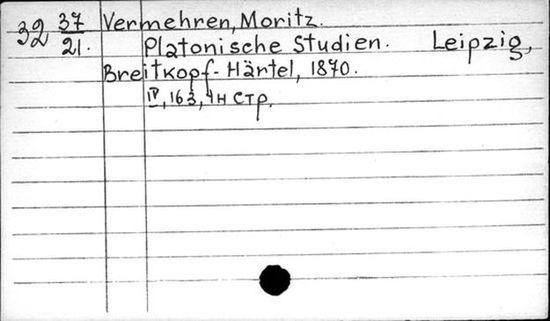 32 37/21. Vermehren, Moritz.
Platonische Studien. Leipzig,
Breitkopf-Härtel, 1870.
IV, 163, 4н стр.